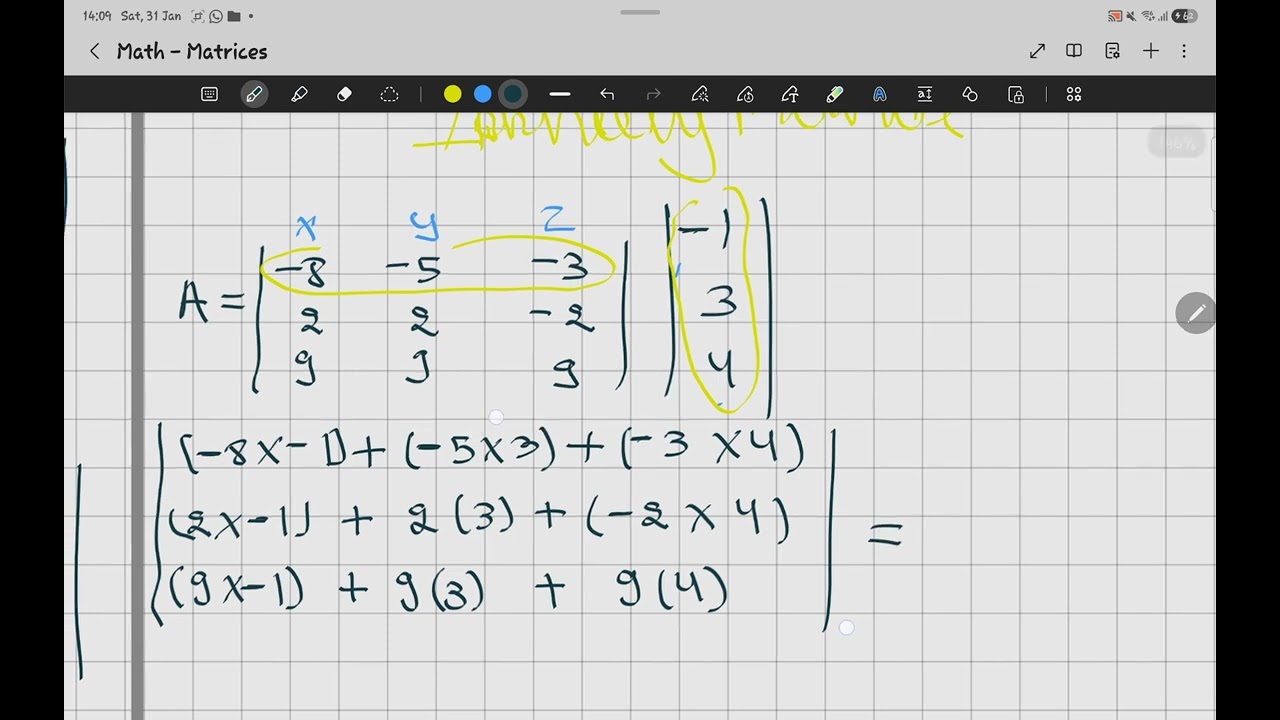 14:09 Sat, 31 Jan
62
Math - Matrices
x y z
A = | -8 -5 -3 | | -1 |
| 2 2 -2 | | 3 |
| 9 9 9 | | 4 |
| (-8x-1) + (-5x3) + (-3 x4) |
| (2x-1) + 2(3) + (-2 x 4) | =
| (9x-1) + 9(3) + 9(4) |